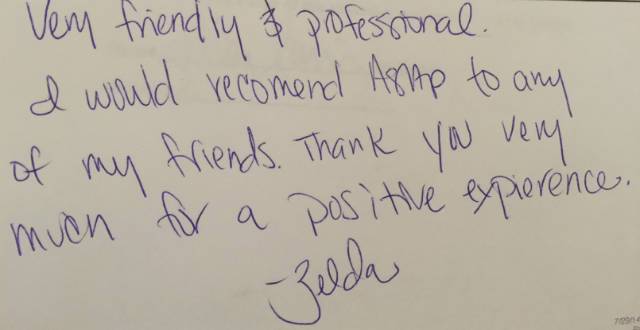 Very friendly & professional.
I would recomend ASAP to any
of my friends. Thank you very
much for a positive expierence.
-Zelda